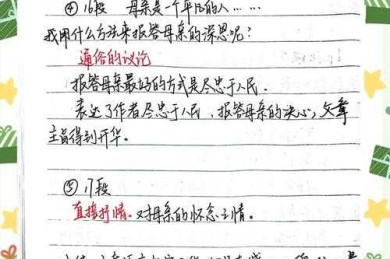 ④ 16段 母亲是一个平凡的人……
我用什么方法来报答母亲的深恩呢？
通俗的议论
报答母亲最好的方式是尽忠于人民.
表达了作者尽忠于人民，报答母亲的决心，文章
主旨得到升华。
⑤ 17段
直接抒情. 对母亲的怀念之情。